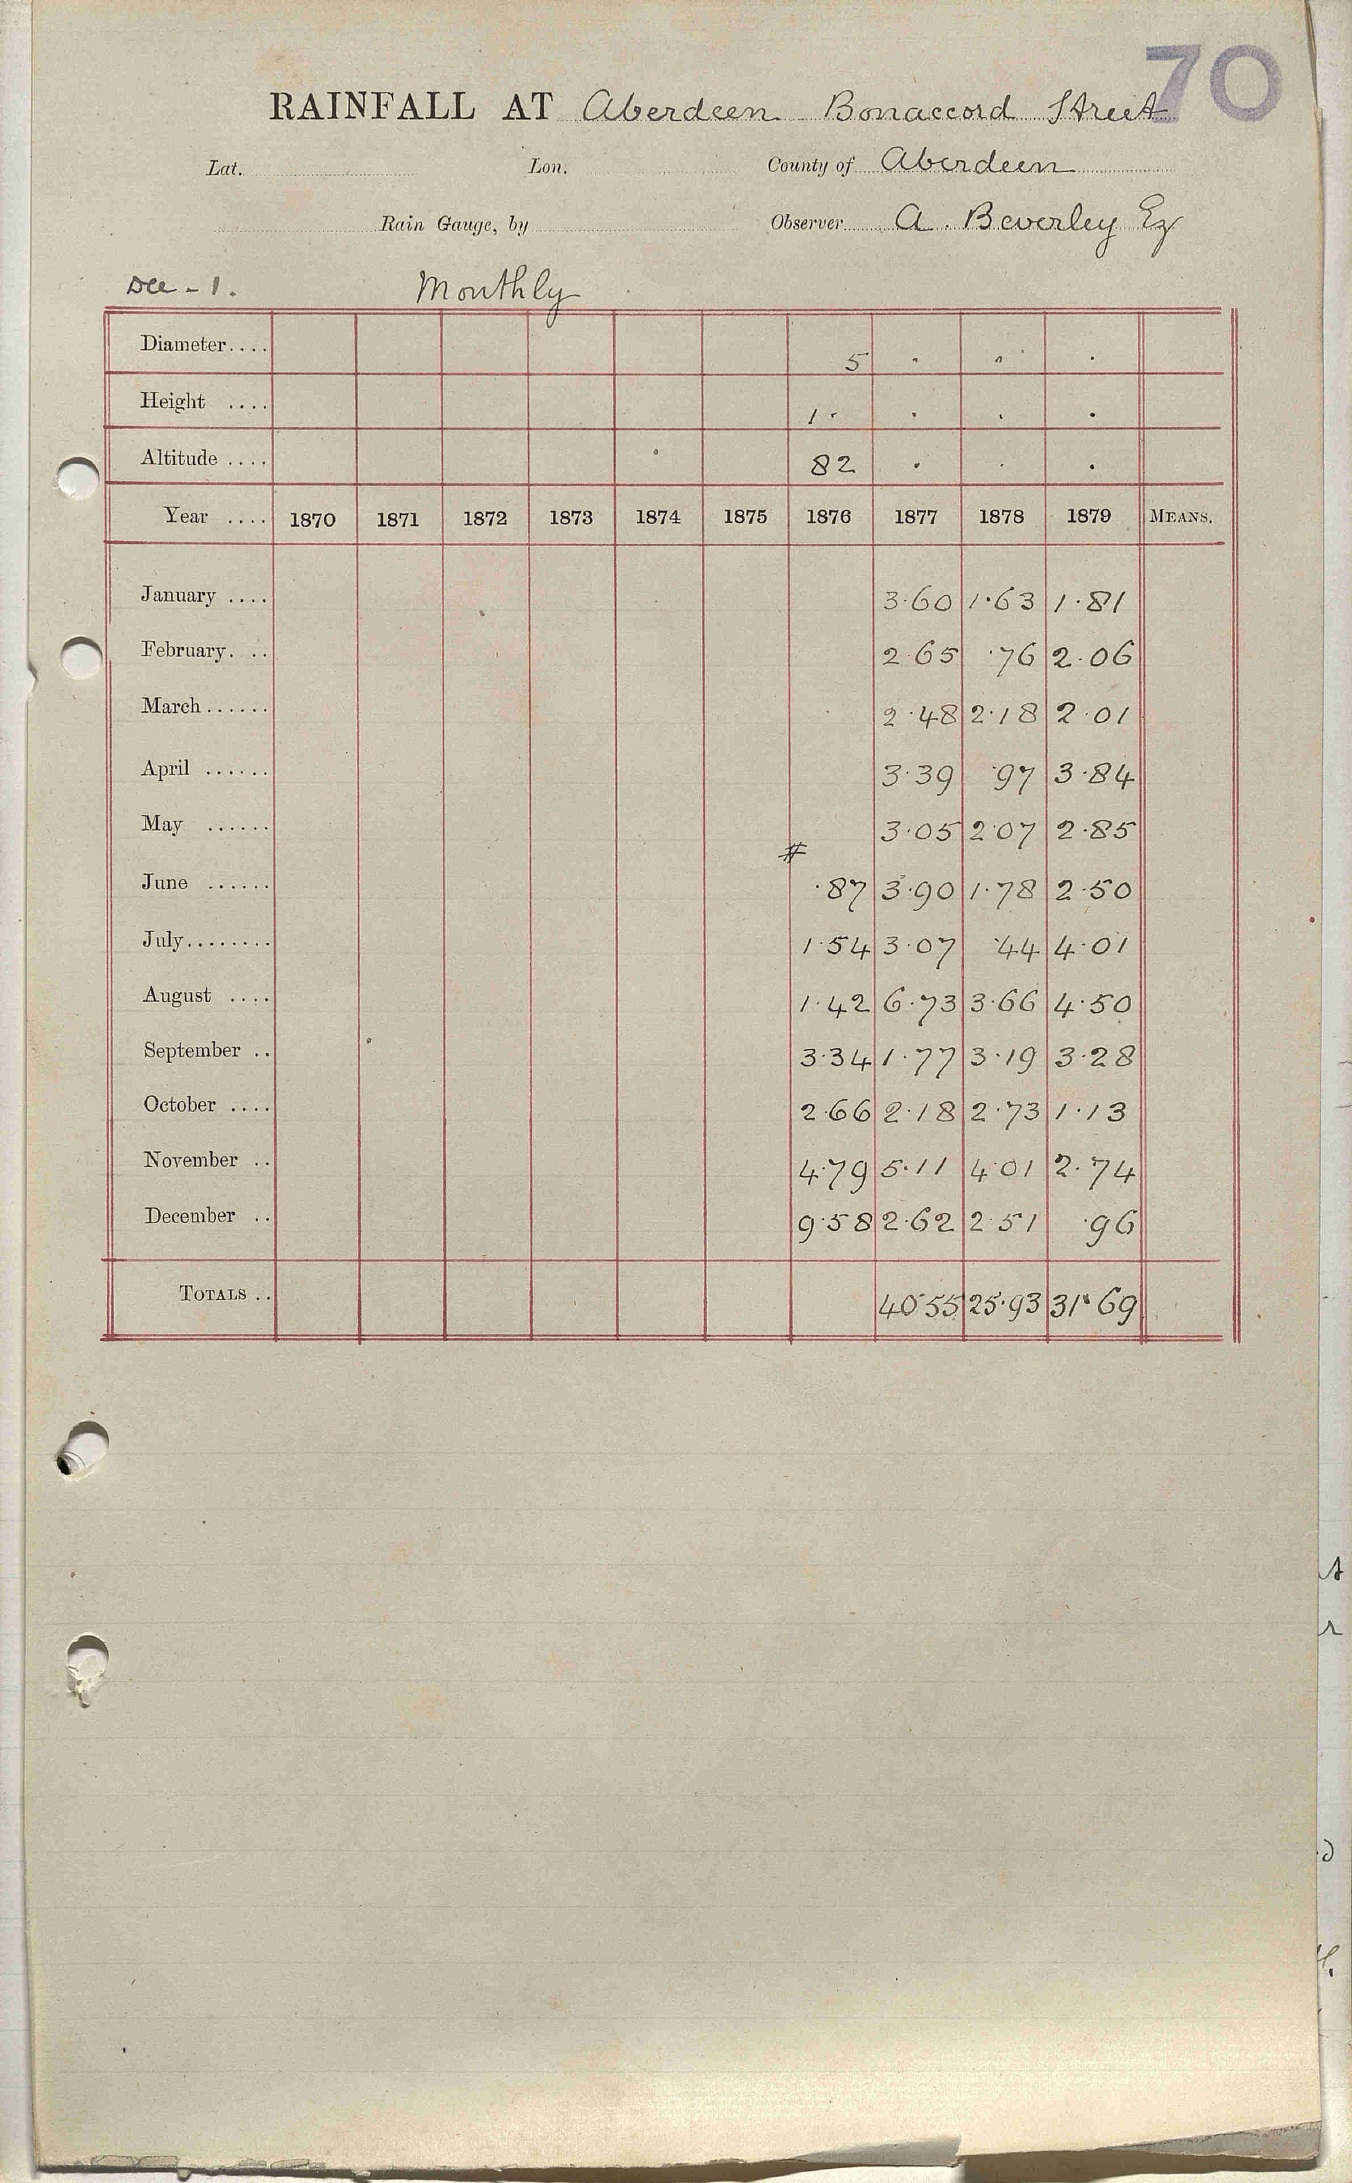 70
RAINFALL AT Aberdeen Bonaccord Street
Lat. Lon. County of Aberdeen
Rain Gauge, by Observer A. Beverley Eq
Dec - 1. Monthly
Diameter.... 5 " " "
Height .... 1 " " "
Altitude .... 82 " " "
Year .... 1870 1871 1872 1873 1874 1875 1876 1877 1878 1879 MEANS.
January .... 3·60 1·63 1·81
February. .. 2·65 ·76 2·06
March...... 2·48 2·18 2·01
April ...... 3·39 ·97 3·84
May ...... 3·05 2·07 2·85
#
June ...... ·87 3·90 1·78 2·50
July........ 1·54 3·07 ·44 4·01
August .... 1·42 6·73 3·66 4·50
September .. 3·34 1·77 3·19 3·28
October .... 2·66 2·18 2·73 1·13
November .. 4·79 5·11 4·01 2·74
December .. 9·58 2·62 2·51 ·96
TOTALS .. 40·55 25·93 31·69